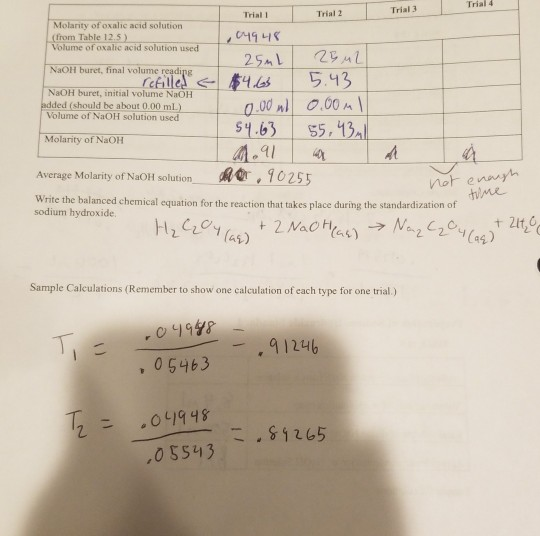 Trial 1 Trial 2 Trial 3 Trial 4
Molarity of oxalic acid solution
(from Table 12.5 )
.04948
Volume of oxalic acid solution used
25ml 25ml
NaOH buret, final volume reading
refilled ← 4.63 5.43
NaOH buret, initial volume NaOH
added (should be about 0.00 mL)
0.00 ml 0.00 ml
Volume of NaOH solution used
54.63 55.43ml
Molarity of NaOH
.91
Average Molarity of NaOH solution .90255
not enough
time
Write the balanced chemical equation for the reaction that takes place during the standardization of
sodium hydroxide.
H2C2O4(aq) + 2 NaOH(aq) → Na2C2O4(aq) + 2H2O
Sample Calculations (Remember to show one calculation of each type for one trial.)
T1 = .04948 / .05463 = .91246
T2 = .04948 / .05543 = .89265